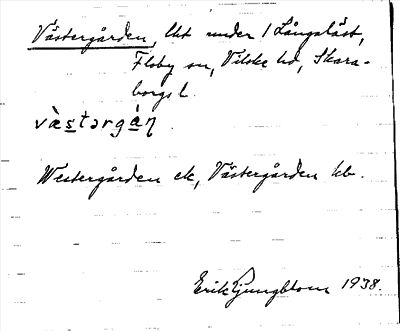 Västergården, lht under 1 Långslätt,
Floby sn, Vilske hd, Skara-
borgs l.
vàstərgàn̩
Westergården ek, Västergården kb.
Erik Ljungblom 1938.